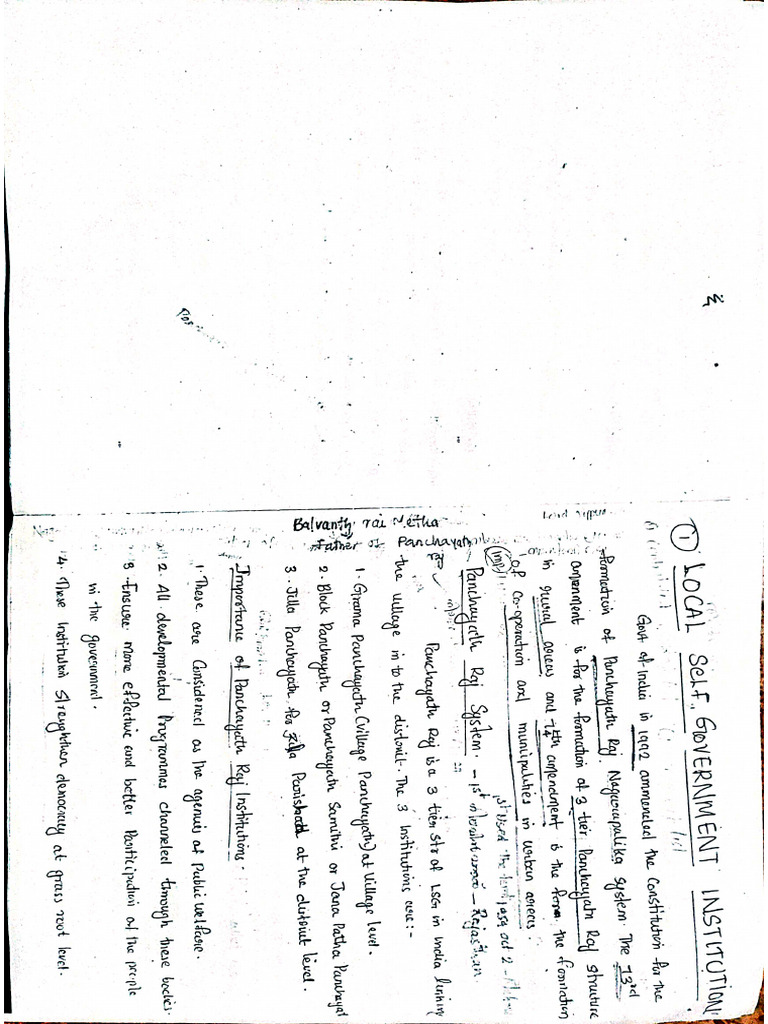 ① LOCAL SELF. GOVERNMENT INSTITUTION
Govt of India in 1992 ammended the Constitution for the
formation of Panchayath Raj Nagarapalika system. The 73rd
amenment is for the formation of 3 tier Panchayath Raj structure
in rural areas and 74th amendment is the form. the formation
of co-operation and munipalities in urban areas.
(imp)
Panchayath Raj System. - 1st - Rajasthan
1st used the oct 2
Panchayath Raj is a 3 tier str of LSG in India linking
the village in to the district. The 3 Institutions are:-
1. Grama Panchayath (Village Panchayath) at Village level.
2. Block Panchayath or Panchayath Samithi or Jana Patha Panchayat
3. Jilla Panchayath for Jilla at the district level.
Balvanth rai Metha
Father of Panchayath
Importance of Panchayath Raj Institutions.
1. These are Considered as the agencies of Public welfare.
2. All developmental Programmes channeled through these bodies.
3. Ensure more effective and better Participation of the people
in the government.
4. These Institution strengthen democracy at grass root level.